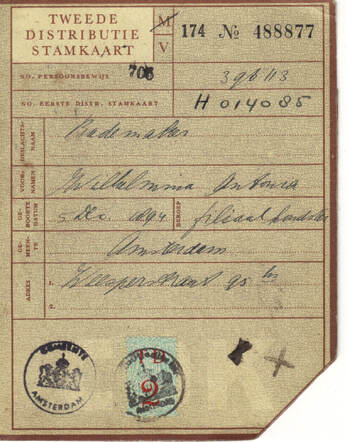 TWEEDE
DISTRIBUTIE
STAMKAART
M
V
174 № 488877
NO. PERSOONSBEWIJS
706
396113
NO. EERSTE DISTR. STAMKAART
H 014085
GESLACHTS-
NAAM
Rademaker
VOOR-
NAMEN
Wilhelmina Antonia
GE-
BOORTE
DATUM
5 Dec. 1894
BEROEP
filiaalhoudster
GE-
MEEN-
TE
Amsterdam
ADRES
1.
Weesperstraat 95 hs
2.
GEMEENTE
AMSTERDAM
2